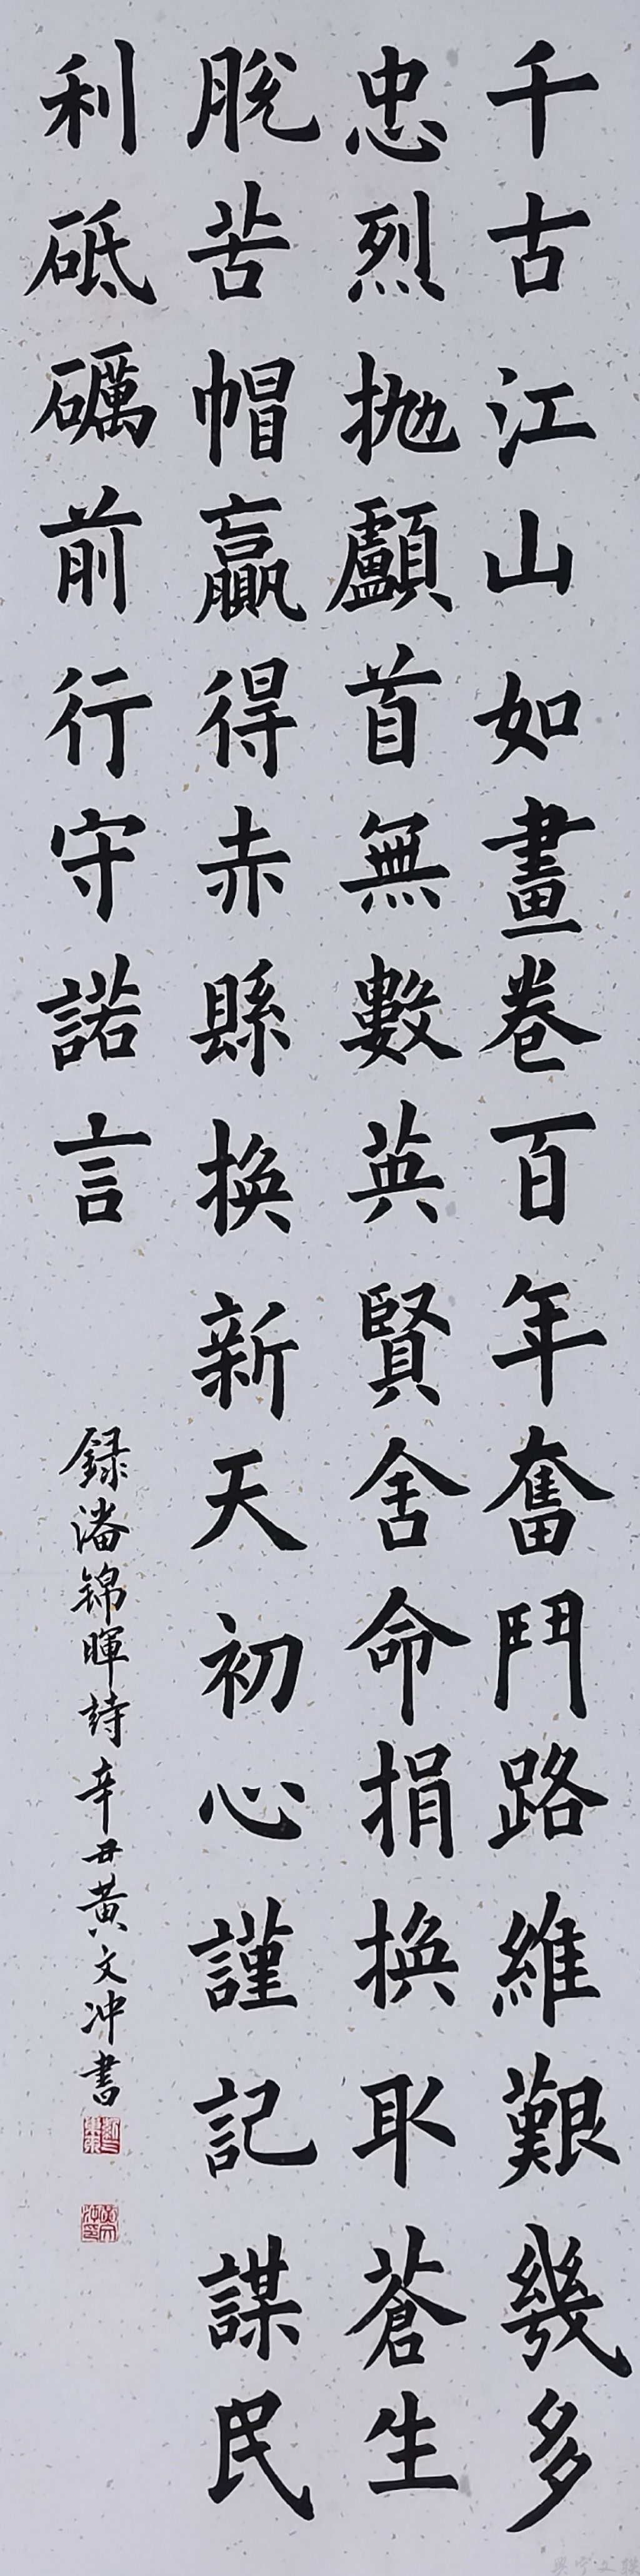 千古江山如畫卷百年奮鬥路維艱幾多
忠烈拋顱首無數英賢舍命捐換取蒼生
脫苦帽贏得赤縣換新天初心謹記謀民
利砥礪前行守諾言
録潘錦暉詩辛丑黃文冲書